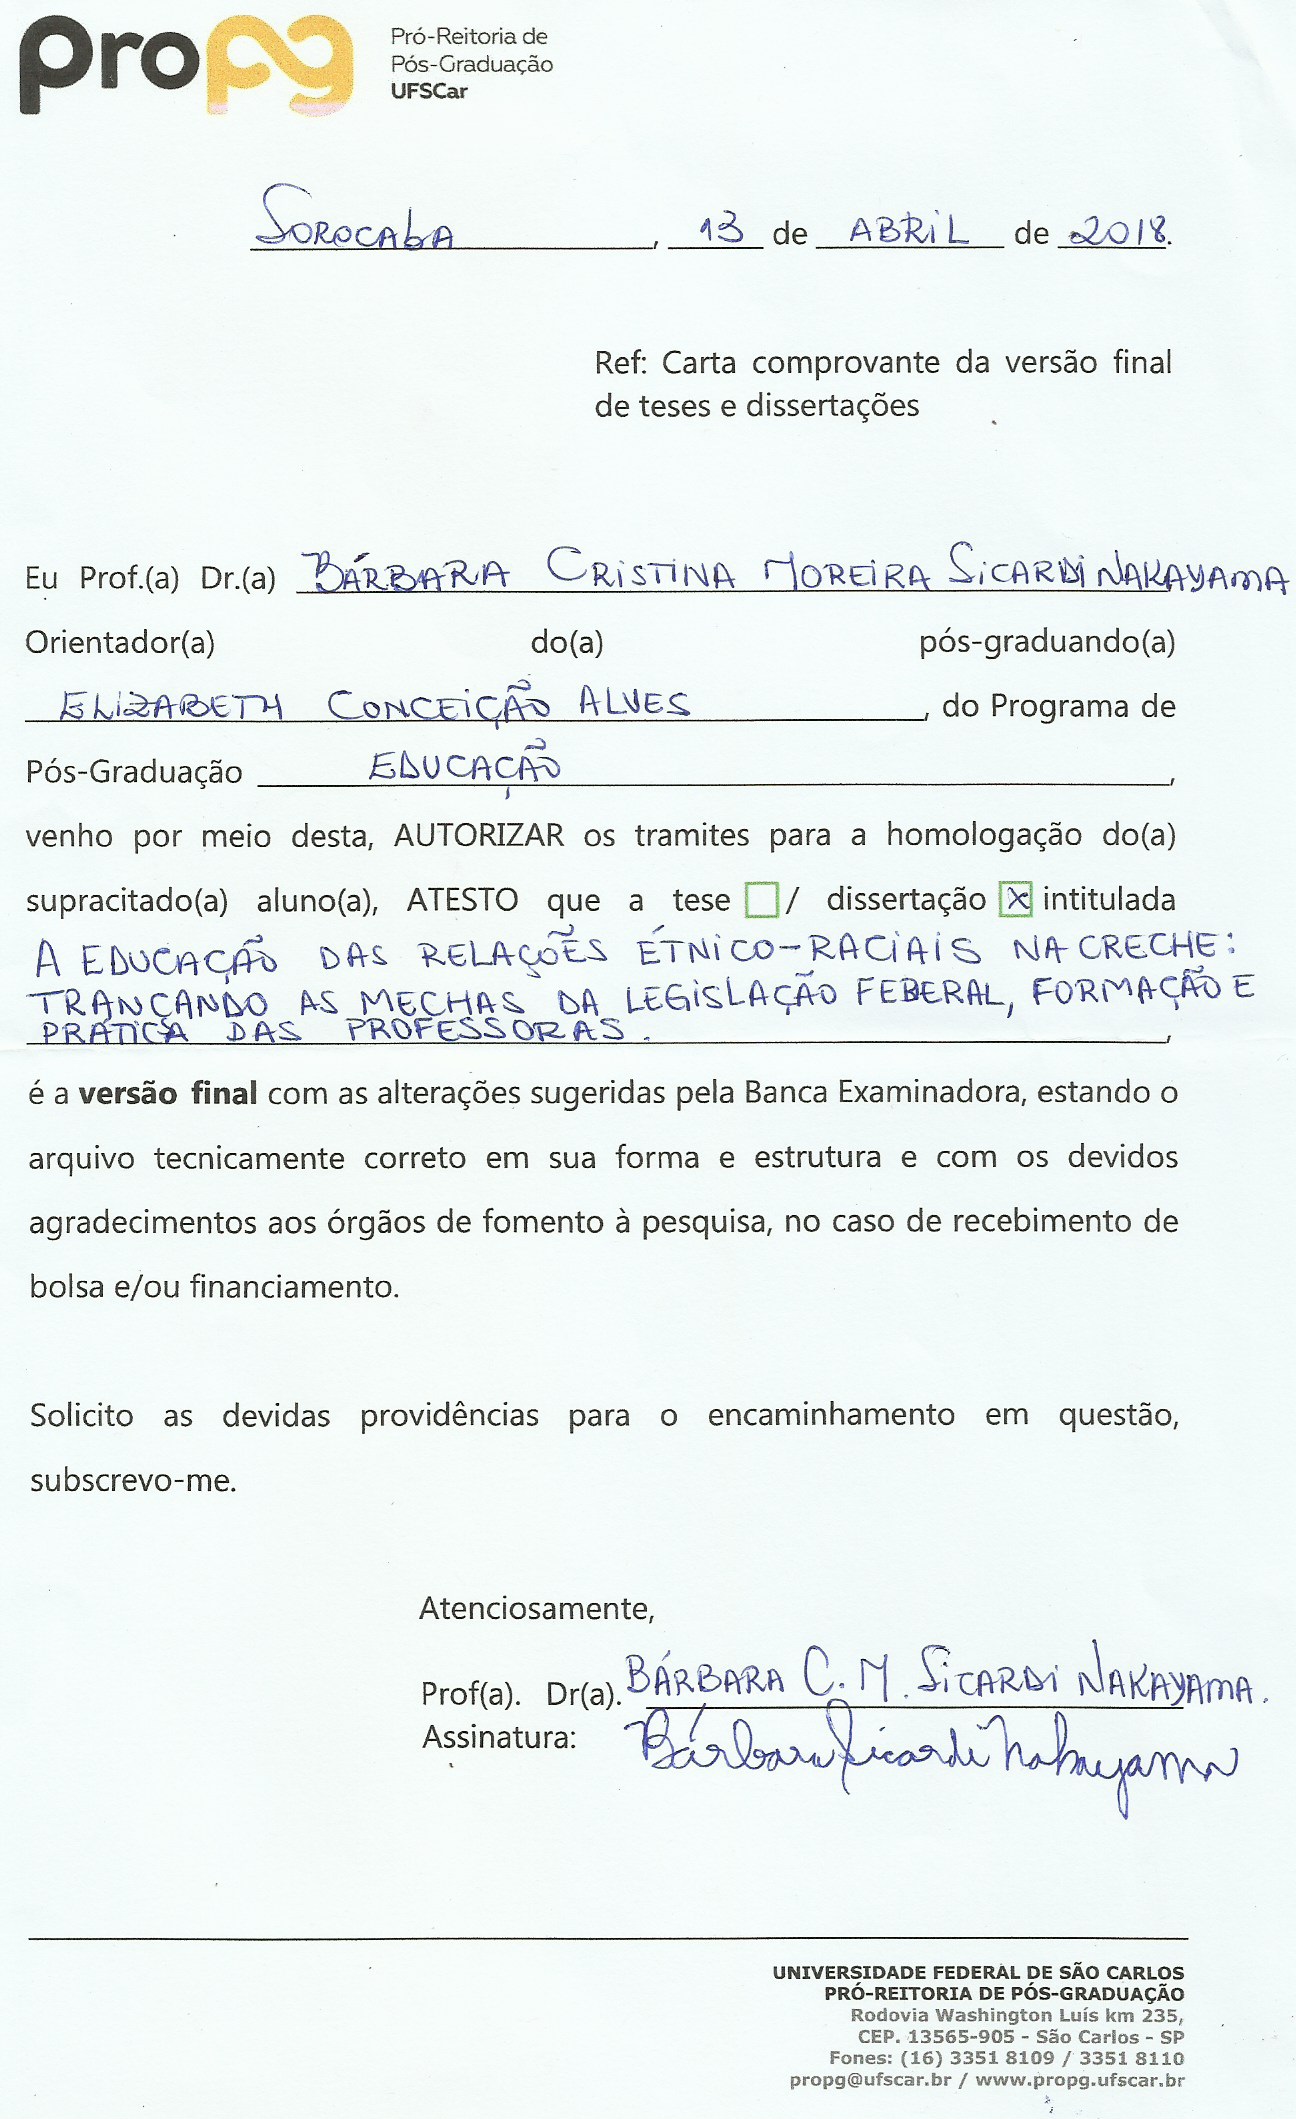 propg
Pró-Reitoria de
Pós-Graduação
UFSCar
Sorocaba, 13 de ABRiL de 2018.
Ref: Carta comprovante da versão final
de teses e dissertações
Eu Prof.(a) Dr.(a) BÁRBARA CRISTINA MOREIRA SICARDI NAKAYAMA
Orientador(a) do(a) pós-graduando(a)
ELIZABETH CONCEIÇÃO ALVES, do Programa de
Pós-Graduação EDUCAÇÃO,
venho por meio desta, AUTORIZAR os tramites para a homologação do(a)
supracitado(a) aluno(a), ATESTO que a tese ☐/ dissertação ☒ intitulada
A EDUCAÇÃO DAS RELAÇÕES ÉTNICO-RACIAIS NA CRECHE:
TRANÇANDO AS MECHAS DA LEGISLAÇÃO FEDERAL, FORMAÇÃO E
PRÁTICA DAS PROFESSORAS.,
é a versão final com as alterações sugeridas pela Banca Examinadora, estando o
arquivo tecnicamente correto em sua forma e estrutura e com os devidos
agradecimentos aos órgãos de fomento à pesquisa, no caso de recebimento de
bolsa e/ou financiamento.
Solicito as devidas providências para o encaminhamento em questão,
subscrevo-me.
Atenciosamente,
Prof(a). Dr(a). BÁRBARA C. M. SICARDI NAKAYAMA.
Assinatura: Bárbara Sicardi Nakayama
UNIVERSIDADE FEDERAL DE SÃO CARLOS
PRÓ-REITORIA DE PÓS-GRADUAÇÃO
Rodovia Washington Luís km 235,
CEP. 13565-905 - São Carlos - SP
Fones: (16) 3351 8109 / 3351 8110
propg@ufscar.br / www.propg.ufscar.br